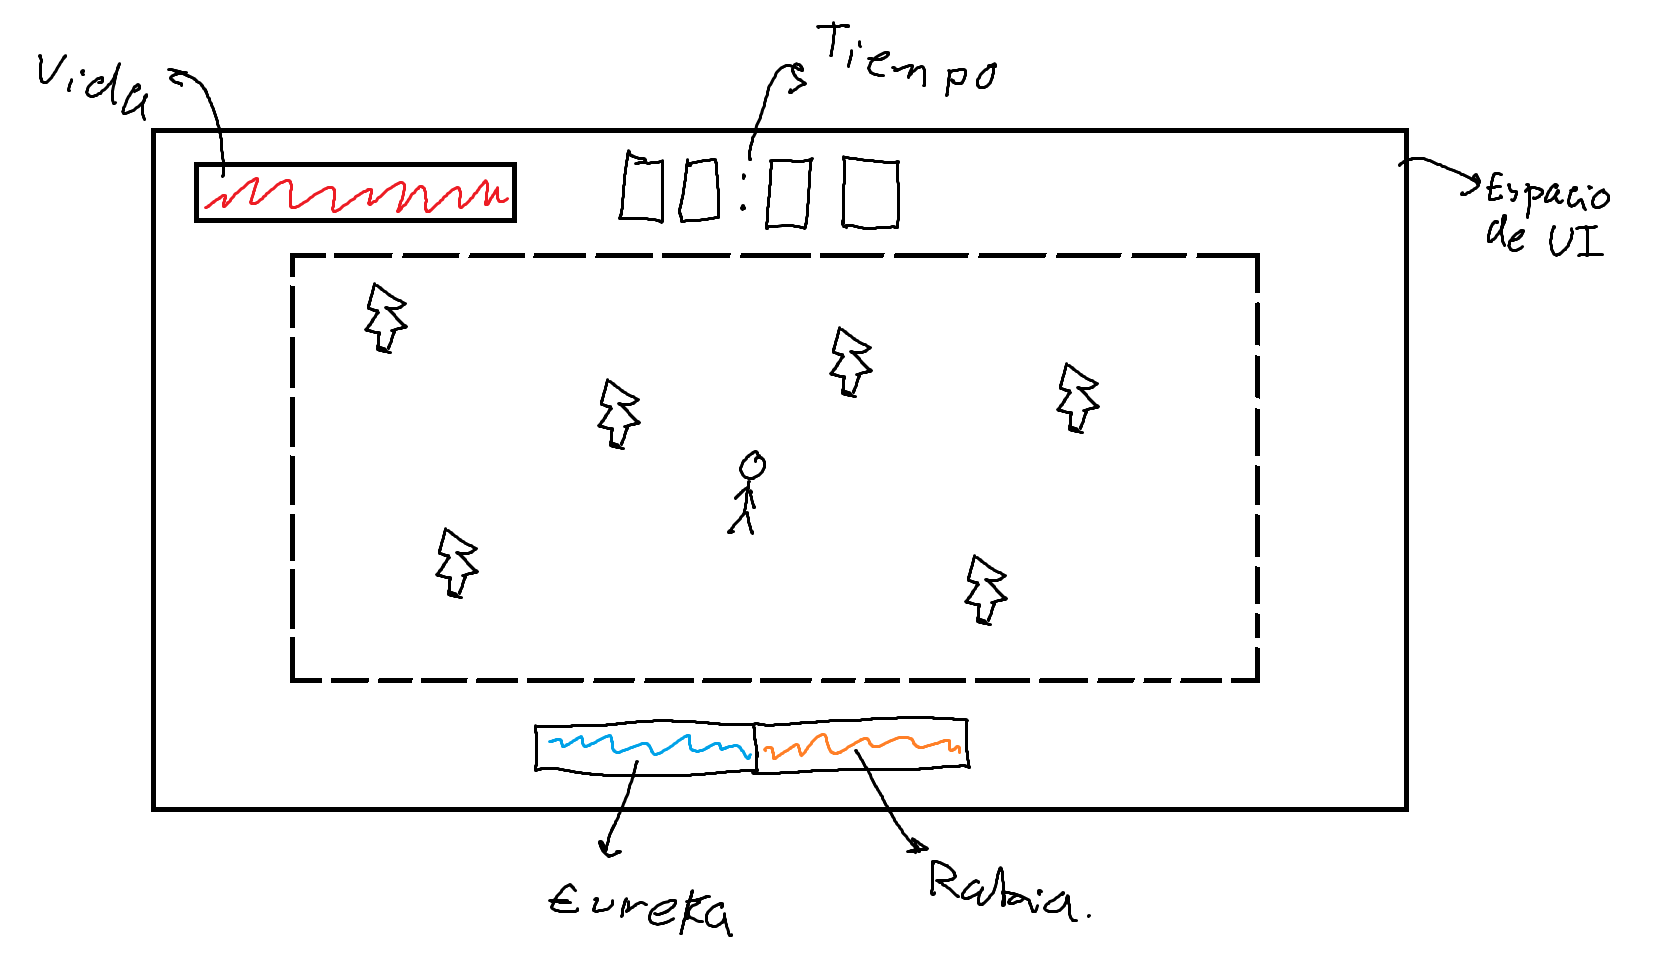 Vida
Tiempo
Espacio
de UI
Eureka
Rabia.